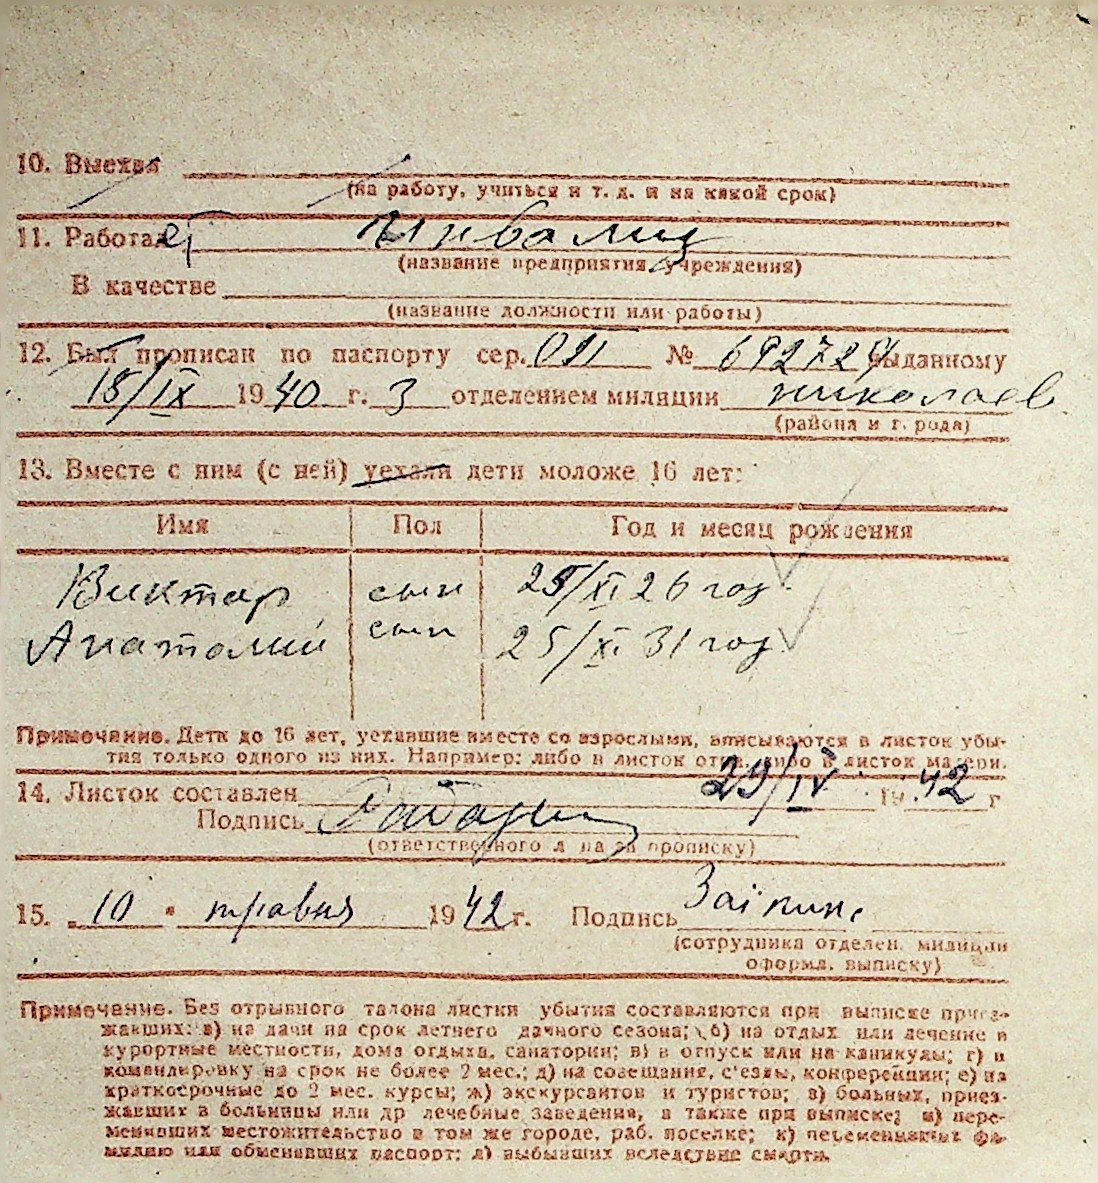 10. Выехал
(на работу, учиться и т. д. и на какой срок)
11. Работает Инвалид
(название предприятия, учреждения)
В качестве
(название должности или работы)
12. Был прописан по паспорту сер. № 692729 выданному
18/IX 1940 г. 3 отделением милиции николаев
(района и города)
13. Вместе с ним (с ней) уехали дети моложе 16 лет:
Имя Пол Год и месяц рождения
Виктар сын 25/XI 26 год
Анатолий сын 25/XI 31 год
Примечание. Дети до 16 лет, уехавшие вместе со взрослыми, вписываются в листок убы-
тия только одного из них. Например: либо в листок отца, либо в листок матери.
14. Листок составлен 29/IV 1942 г
Подпись
(ответственного лица за прописку)
15. „10" травня 1942 г. Подпись
(сотрудника отделен. милиции
оформл. выписку)
Примечание. Без отрывного талона листки убытия составляются при выписке приез-
жавших: а) на дачи на срок летнего дачного сезона; б) на отдых или лечение в
курортные местности, дома отдыха, санатории; в) в отпуск или на каникулы; г) в
командировку на срок не более 2 мес.; д) на совещания, с'езды, конференции; е) на
краткосрочные до 2 мес. курсы; ж) экскурсантов и туристов; з) больных, приез-
жавших в больницы или др лечебные заведения, а также при выписке; и) пере-
менивших местожительство в том же городе, раб. поселке; к) переменивших фа-
милию или обменявших паспорт; л) выбывших вследствие смерти.